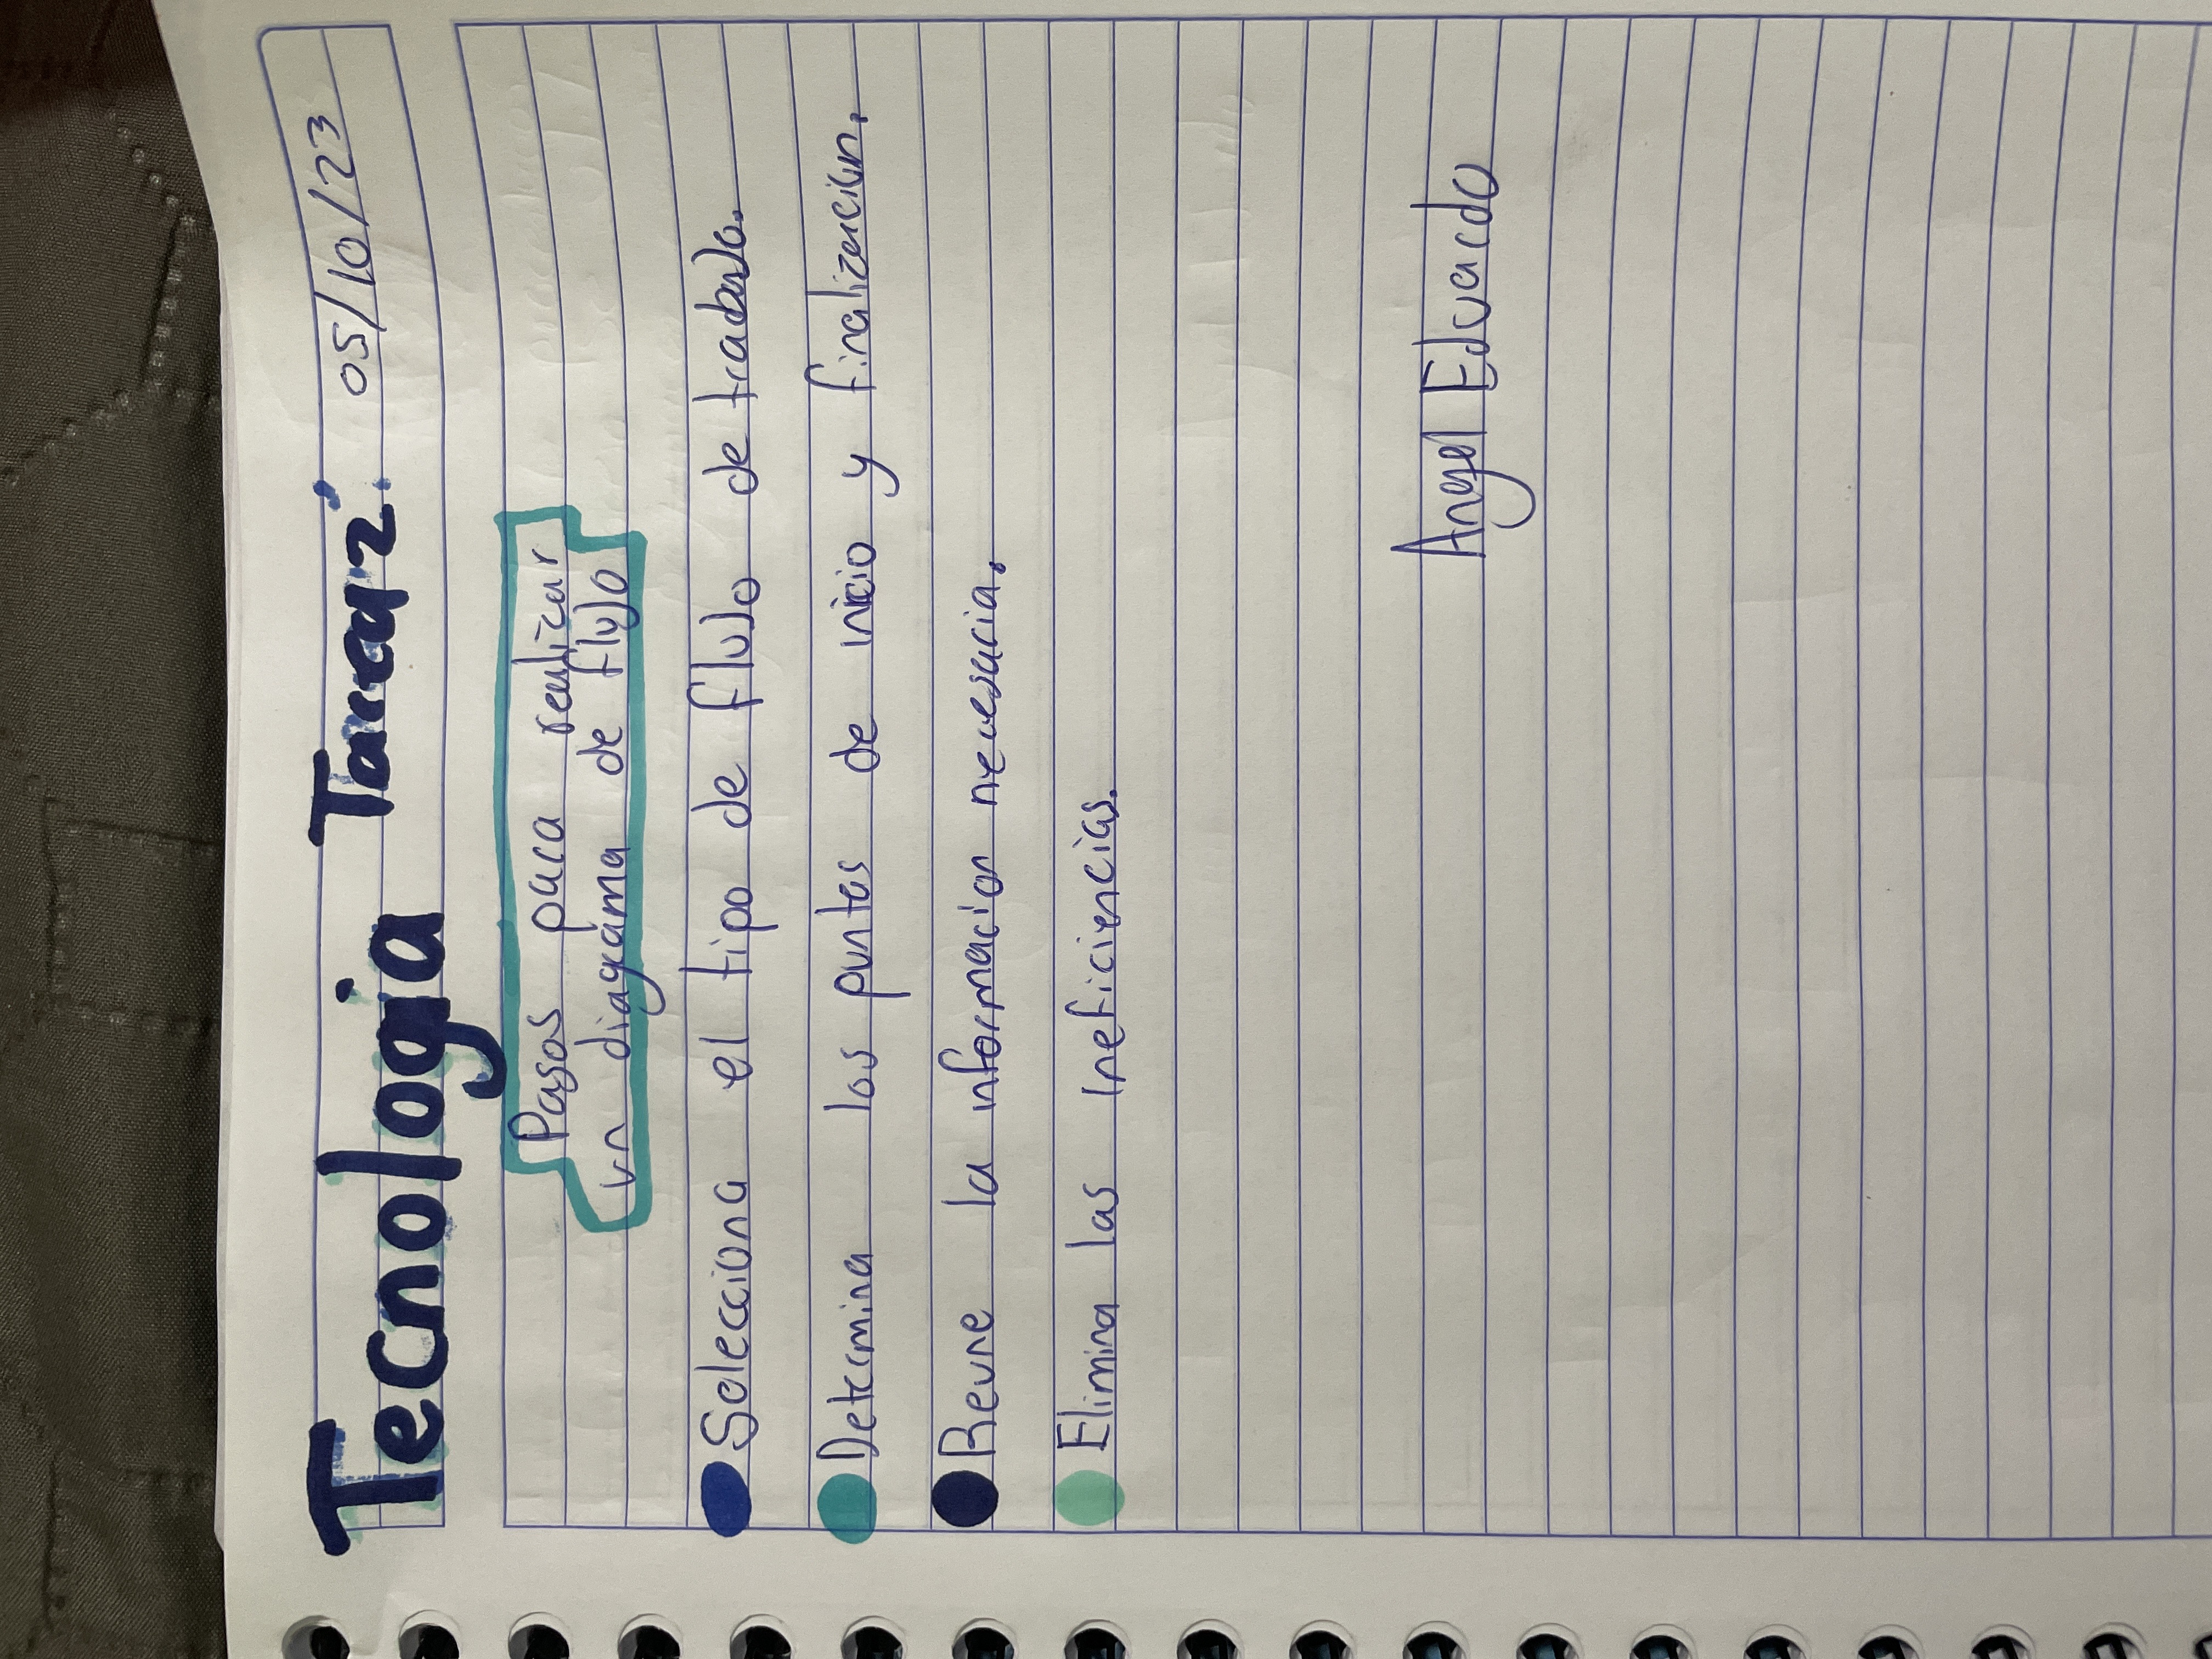 Tecnologia Tarea 2. 05/10/23
Pasos para realizar
un diagrama de flujo
Selecciona el tipo de flujo de trabajo.
Determina los puntos de inicio y finalizacion.
Reune la informacion necesaria.
Elimina las ineficiencias.
Angel Eduardo